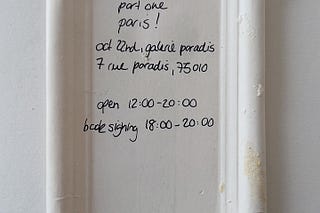 part one
paris!
oct 22nd, galerie paradis
7 rue paradis, 75010
open 12:00-20:00
book signing 18:00-20:00